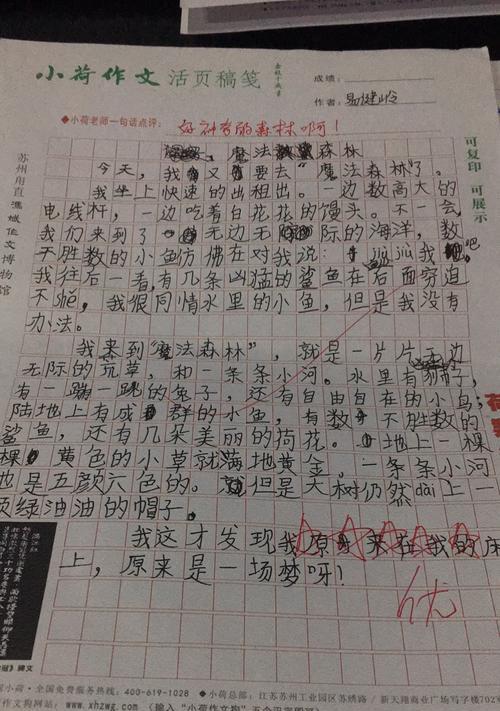 小荷作文 活页稿笺
成绩：
作者：
◆小荷老师一句话点评：好神奇的森林啊！
可复印 可展示
苏州甪直 澹城佳文博物馆
魔法森林
今天，我又要去“魔法森林”了。
我坐上快速的出租出。一边数高大的
电线杆，一边吃着白花花的馒头。不一会
我们来到了无边无际的海洋，数
不胜数的小鱼仿佛在对我说：jiù jiu我吧
我往后一看有几条凶猛的鲨鱼在后面穷迫
不shě，我很同情水里的小鱼，但是我没有
办法。
我来到“魔法森林”，就是一片片无边
无际的玩草，和一条条小河。水里有狮子，
有一蹦一跳的兔子，还有自由自在的小鸟，
陆地上有成群的小鱼，有数不胜数的
鲨鱼，还有几朵美丽的荷花。地上一棵
棵黄色的小草就满地黄金，一条条小河
也是五颜六色的。但是大树仍然dài上一
顶绿油油的帽子。
我这才发现我原来在我的床
上，原来是一场梦呀！
优
满江红
碑文
小荷·全国免费服务电话：400-619-1028 ◆小荷总部：江苏苏州工业园区苏绣路/新天翔商业广场写字楼702
作文狗网站：www.xhzwg.com（输入“小荷作文狗”五个汉字即可）